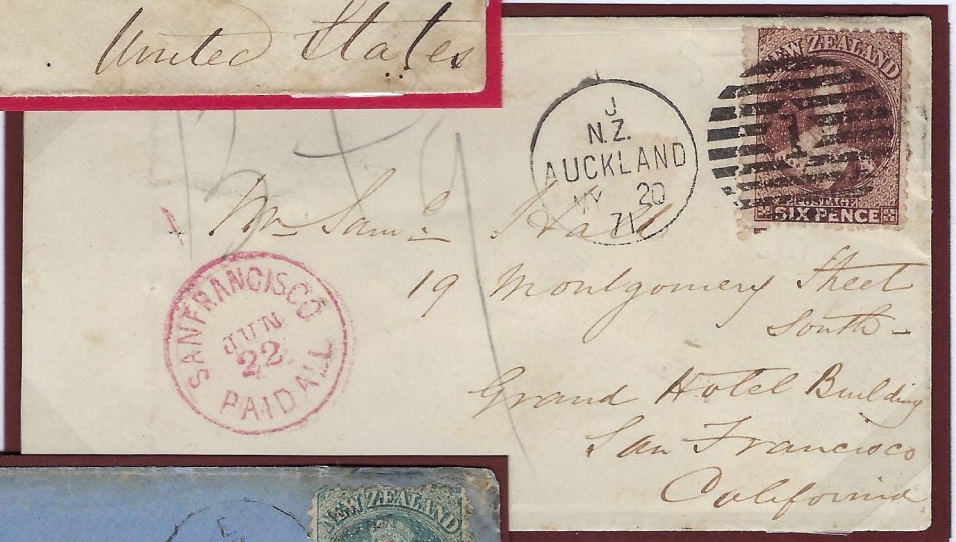 United States
NEW ZEALAND
1
POSTAGE
SIX PENCE
J
N.Z.
AUCKLAND
MY 20
71
Mr Saml Hall
19 Montgomery Street
South
Grand Hotel Building
San Francisco
California
SAN FRANCISCO
JUN
22
PAID ALL
NEW ZEALAND
E